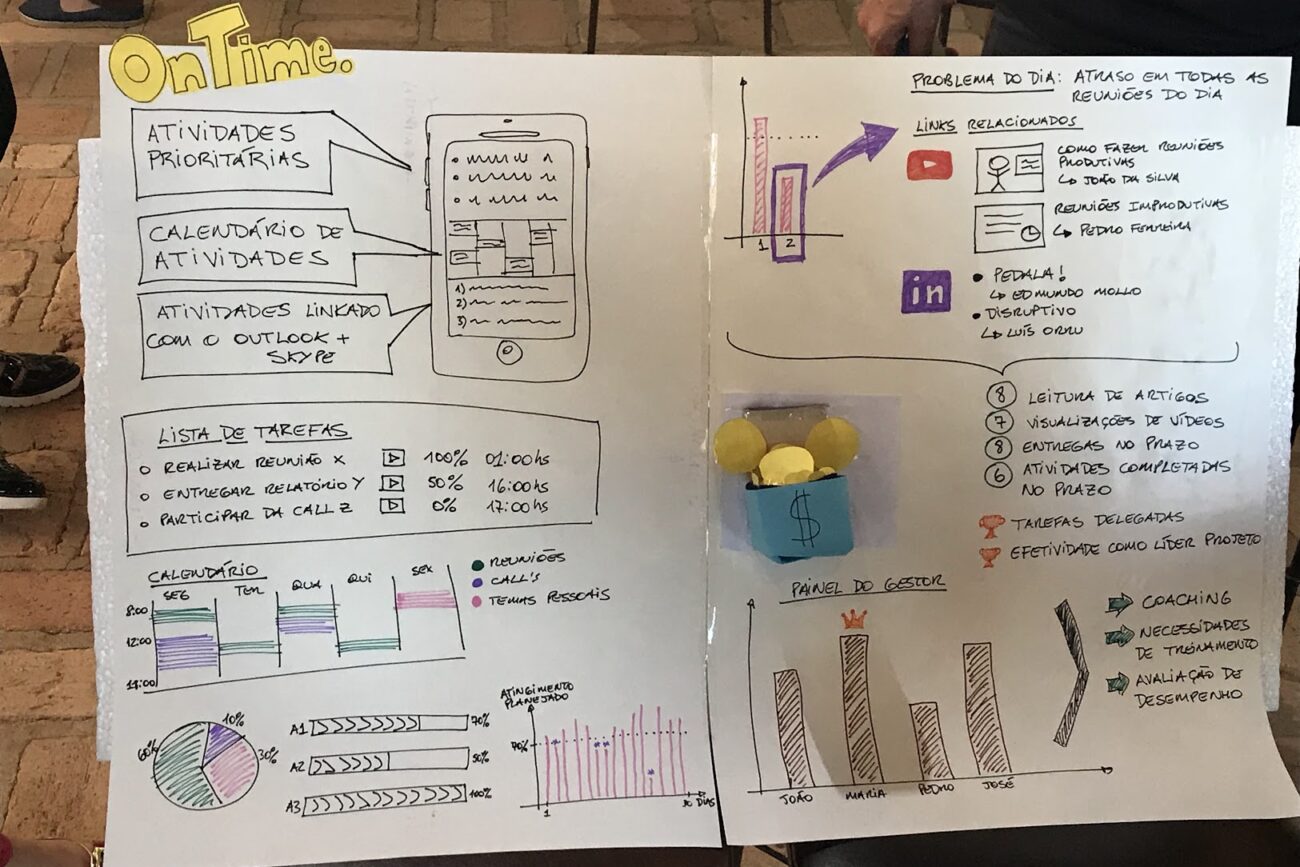 OnTime.
ATIVIDADES
PRIORITÁRIAS
CALENDÁRIO DE
ATIVIDADES
ATIVIDADES LINKADO
COM O OUTLOOK +
SKYPE
1)
2)
3)
LISTA DE TAREFAS
REALIZAR REUNIÃO X 100% 01:00hs
ENTREGAR RELATÓRIO Y 50% 16:00hs
PARTICIPAR DA CALL Z 0% 17:00hs
CALENDÁRIO
SEG TER QUA QUI SEX
8:00
12:00
REUNIÕES
CALL'S
TEMAS PESSOAIS
60% 10% 30%
A1 70%
A2 50%
A3 100%
ATINGIMENTO
PLANEJADO
70%
1 30 DIAS
1 2
PROBLEMA DO DIA: ATRASO EM TODAS AS
REUNIÕES DO DIA
LINKS RELACIONADOS
COMO FAZER REUNIÕES
PRODUTIVAS
JOÃO DA SILVA
REUNIÕES IMPRODUTIVAS
PEDRO FERREIRA
in
PEDALA!
EDMUNDO MOLLO
DISRUPTIVO
LUÍS ORRU
8 LEITURA DE ARTIGOS
7 VISUALIZAÇÕES DE VÍDEOS
8 ENTREGAS NO PRAZO
6 ATIVIDADES COMPLETADAS
NO PRAZO
TAREFAS DELEGADAS
EFETIVIDADE COMO LÍDER PROJETO
$
PAINEL DO GESTOR
JOÃO MARIA PEDRO JOSÉ
COACHING
NECESSIDADES
DE TREINAMENTO
AVALIAÇÃO DE
DESEMPENHO